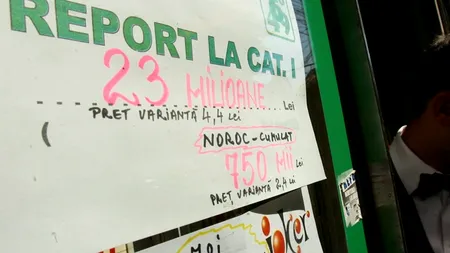 REPORT LA CAT. I
23 MILIOANE... Lei
PREȚ VARIANTĂ 4,4 Lei
NOROC-CUMULAT
750 MII Lei
PREȚ VARIANTĂ 2,4 Lei
joker